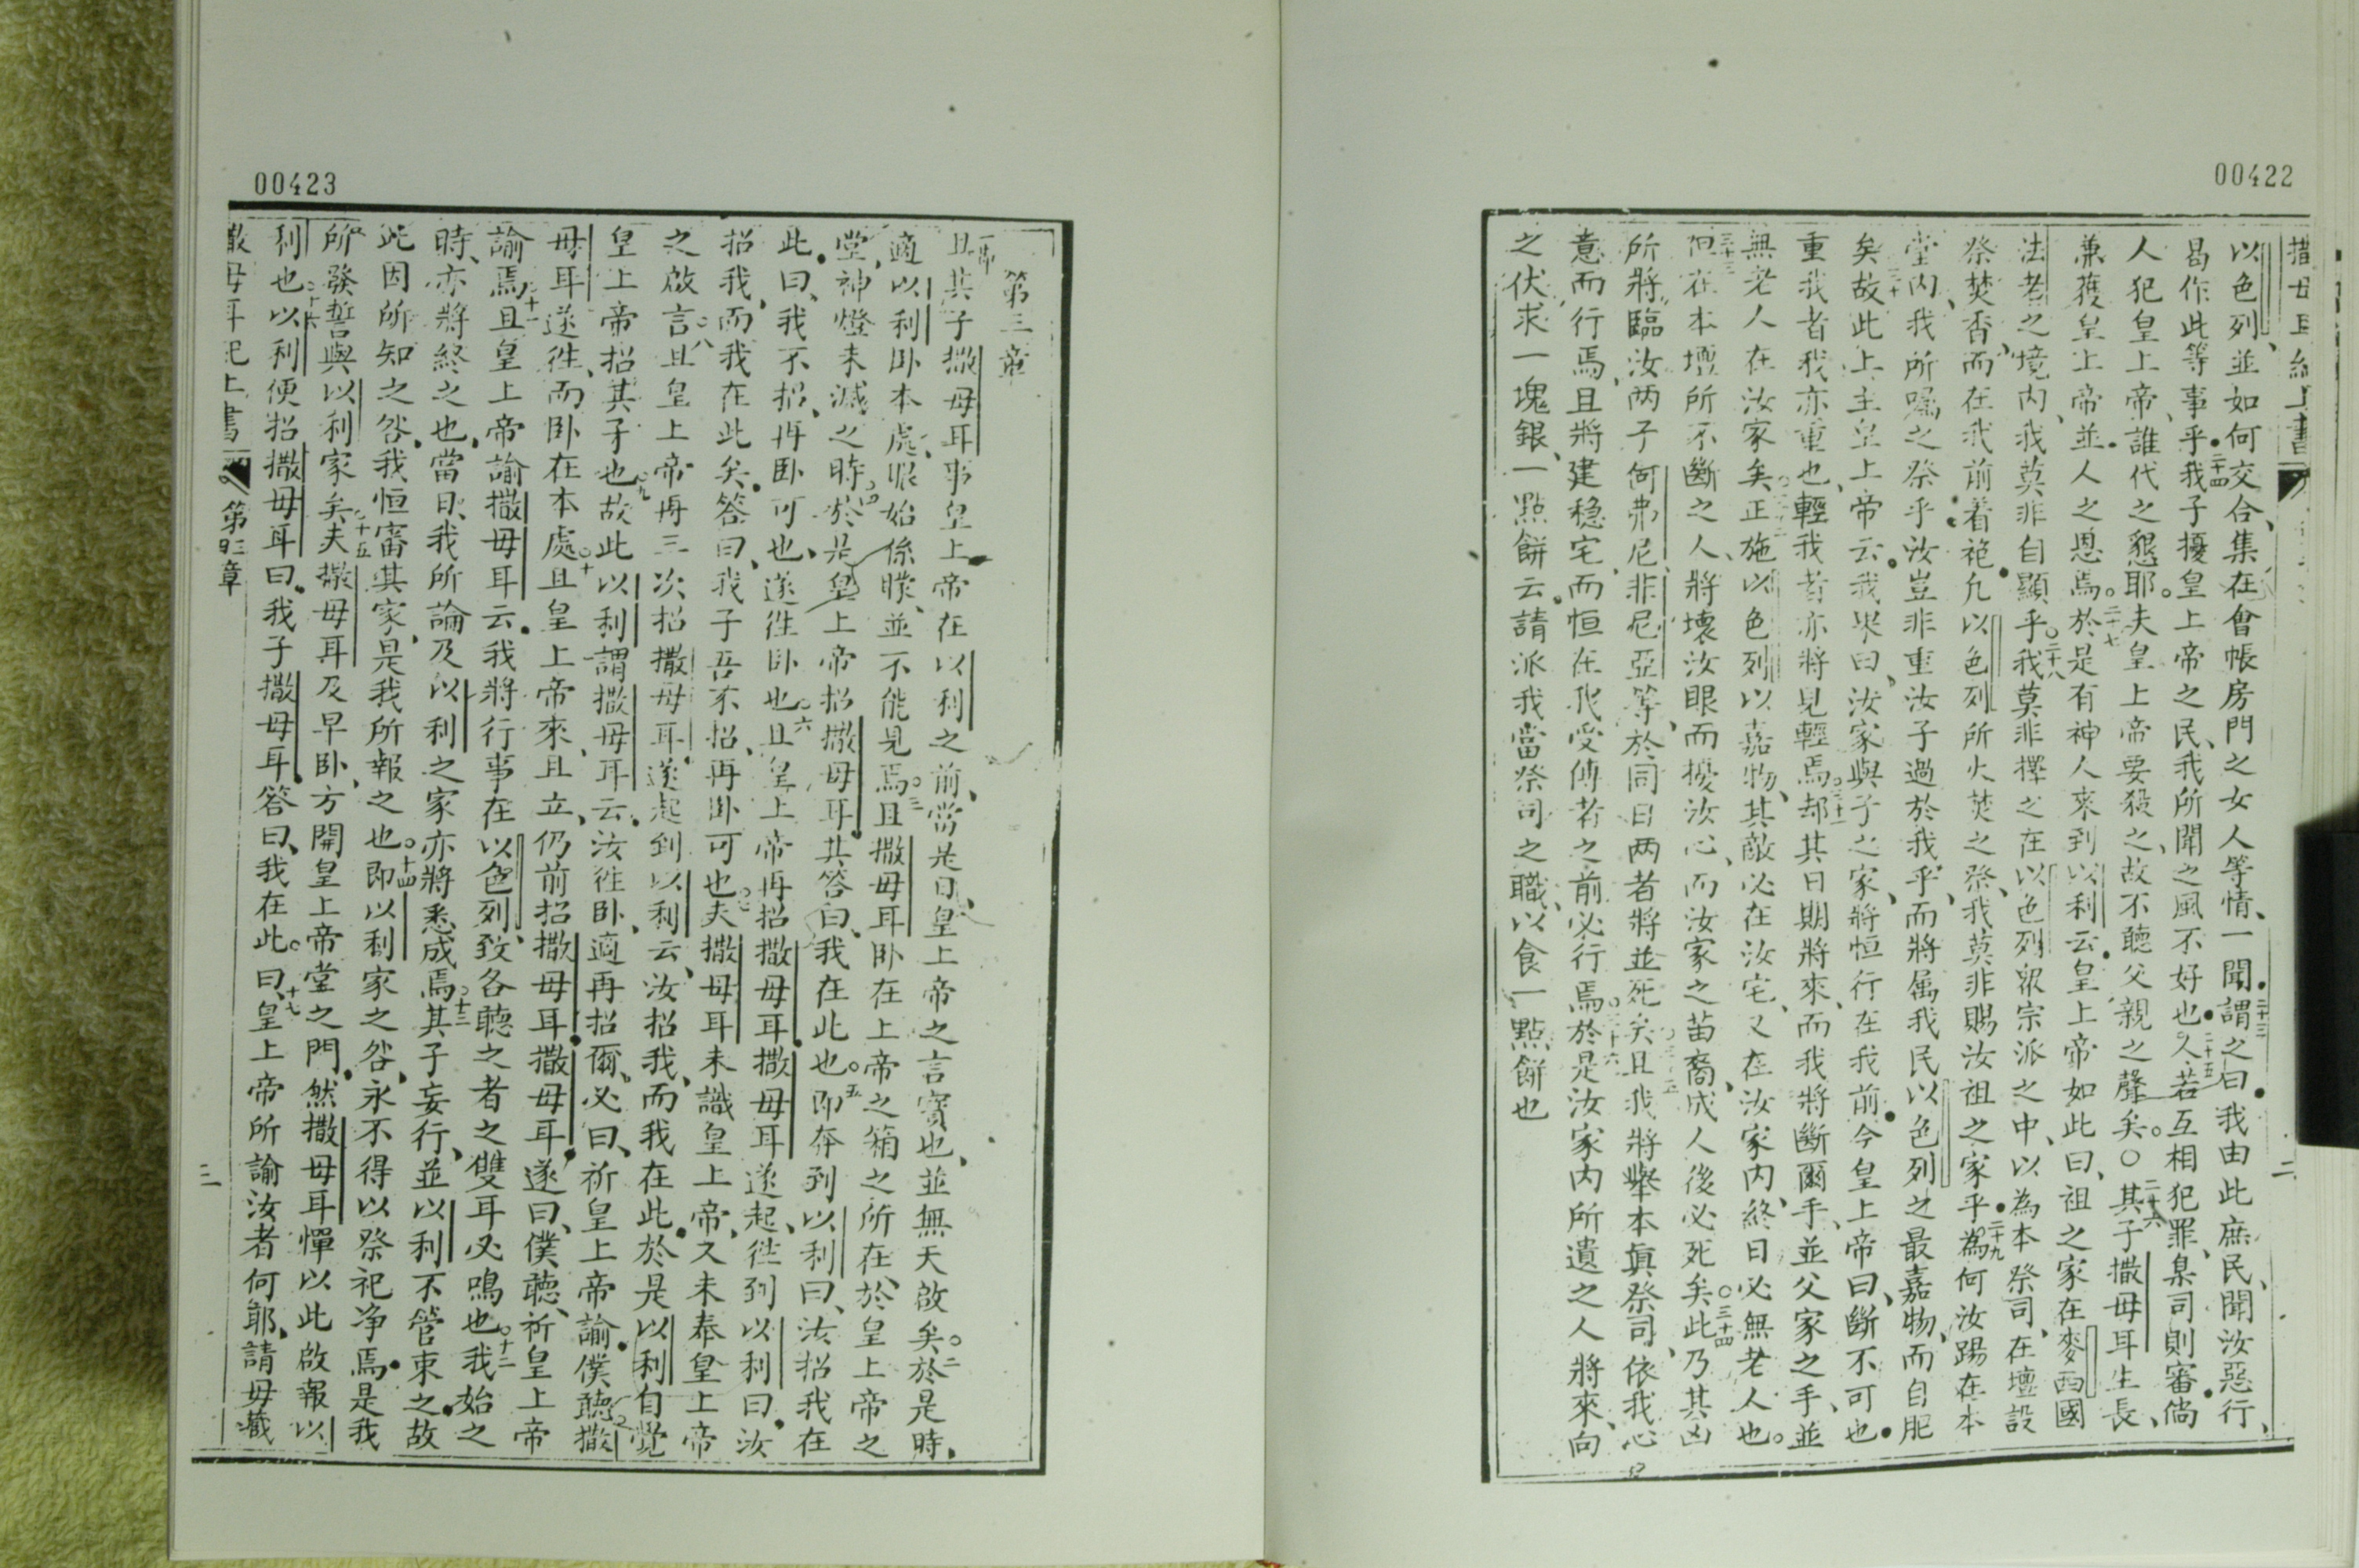 00422
撒母耳紀上書
以色列、並如何交合、集在會帳房門之女人等情、一聞謂之曰。我由此庶民、聞汝惡行、
曷作此等事乎。我子擾皇上帝之民、我所聞之風不好也。人若互相犯罪、臬司則審。倘
人犯皇上帝、誰代之懇耶。夫皇上帝要殺之、故不聽父親之聲矣。○其子撒母耳生長、
兼獲皇上帝並人之恩焉。於是有神人來到以利云。皇上帝如此曰、祖之家在麥西國
法老之境內、我莫非自顯乎。我莫非擇之在以色列眾宗派之中、以為本祭司、在壇設
祭焚香、而在我前着袍。凡以色列所火焚之祭、我莫非賜汝祖之家乎。為何汝踢在本
堂內、我所囑之祭乎。汝豈非重汝子過於我乎、而將属我民以色列之最嘉物、而自肥
矣。故此上主皇上帝云。我果曰、汝家與子之家、將恒行在我前。今皇上帝曰、斷不可也。
重我者我亦重也、輕我者亦將見輕焉。却其日期將來、而我將斷爾手、並父家之手、並
無老人在汝家矣。正施以色列以嘉物、其敵必在汝宅、又在汝家內、終日必無老人也。
但在本壇所不斷之人、將壞汝眼而擾汝心、而汝家之苗裔、成人後必死矣。此乃其凶
所將臨汝两子何弗尼、非尼亞等、於同日两者將並死矣。且我將舉本眞祭司、依我心
意而行焉、且將建穏宅、而恒在我受傅者之前必行焉。於是汝家內所遺之人將來、向
之伏求一塊銀、一點餅云。請派我當祭司之職、以食一點餅也
二
00423
第三章
且其子撒母耳事皇上帝在以利之前、當是日、皇上帝之言寶也、並無天啟矣。於是時、
適以利卧本處、眼始係矇、並不能見焉。且撒母耳卧在上帝之箱之所在、於皇上帝之
堂、神燈未滅之時。於是皇上帝招撒母耳、其答曰、我在此也。即奔到以利曰、汝招我在
此。曰、我不招、再卧可也、遂徃卧也。且皇上帝再招撒母耳。撒母耳遂起、徃到以利曰、汝
招我、而我在此矣。答曰、我子吾不招、再卧可也。夫撒母耳未識皇上帝、又未奉皇上帝
之啟言。且皇上帝再三次招撒母耳、遂起到以利云、汝招我、而我在此。於是以利自覺
皇上帝招其子也。故此以利謂撒母耳云。汝徃卧、適再招爾、必曰、祈皇上帝諭。僕聽。撒
母耳遂徃、而卧在本處。且皇上帝來、且立、仍前招撒母耳。撒母耳。遂曰、僕聽、祈皇上帝
諭焉。且皇上帝諭撒母耳云。我將行事在以色列、致各聽之者之雙耳必鳴也。我始之
時、亦將終之也、當日、我所論及以利之家亦將悉成焉。其子妄行、並以利不管束之。故
此因所知之咎、我恒審其家、是我所報之也。即以利家之咎、永不得以祭祀净焉。是我
所發誓與以利家矣。夫撒母耳及早卧、方開皇上帝堂之門。然撒母耳憚以此啟報以
利也。以利便招撒母耳曰。我子撒母耳。答曰、我在此。曰、皇上帝所諭汝者何耶、請毋藏
撒母耳紀上書
第三章
三